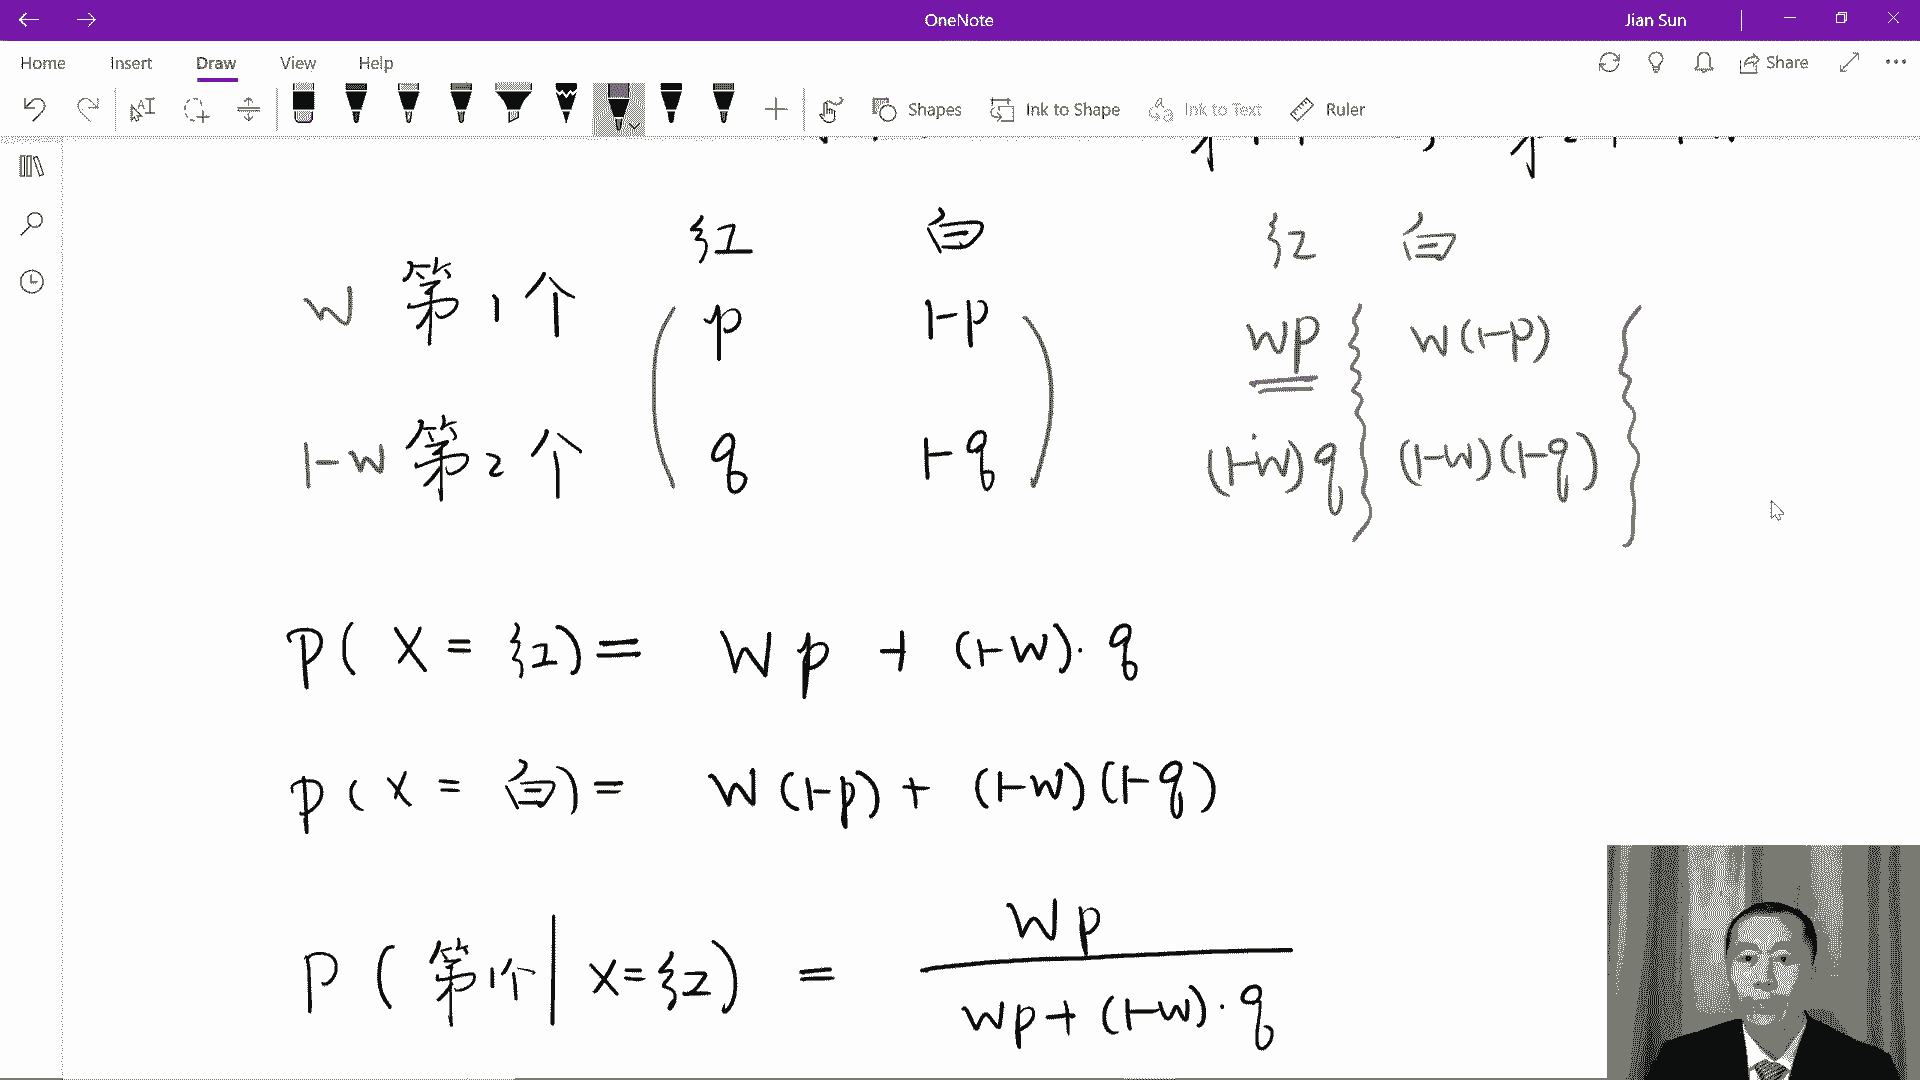 OneNote
Jian Sun
Home Insert Draw View Help
Share
Shapes Ink to Shape Ink to Text Ruler
红 白 红 白
W 第1个 p 1-p wp w(1-p)
1-w 第2个 q 1-q (1-w)q (1-w)(1-q)
P( X = 红) = Wp + (1-W)·q
P( X = 白) = W(1-p) + (1-W)(1-q)
P( 第1个 | X=红) = Wp
wp+(1-W)·q